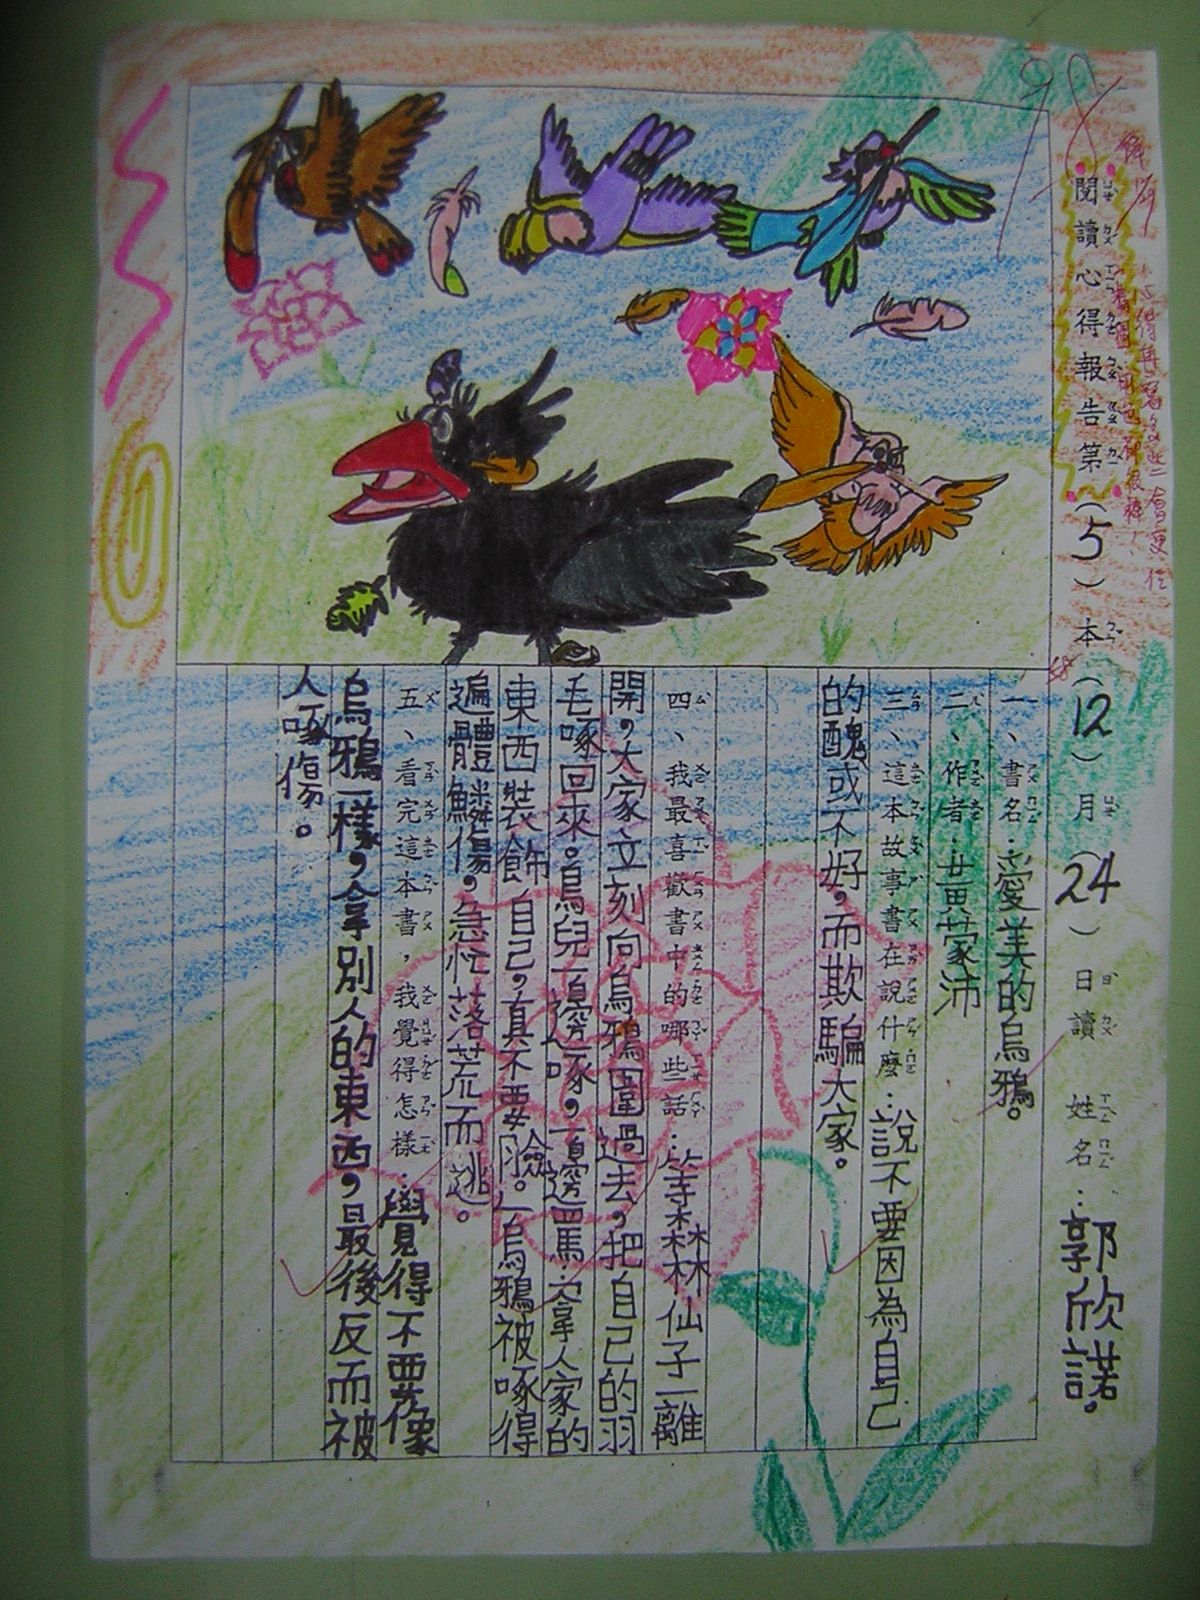 閱讀心得報告第(5)本(12)月(24)日讀 姓名:郭欣諾。
98
一、書名:愛美的烏鴉。
二、作者:黃蒙沛
三、這本故事書在說什麼:說不要因為自己
的醜或不好,而欺騙大家。
四、我最喜歡書中的哪些話:等森林仙子一離
開,大家立刻向烏鴉圍過去,把自己的羽
毛啄回來。鳥兒一邊啄,一邊罵:拿人家的
東西裝飾自己,真不要臉。烏鴉被啄得
遍體鱗傷,急忙落荒而逃。
五、看完這本書,我覺得怎樣:覺得不要像
烏鴉一樣,拿別人的東西,最後反而被
人啄傷。